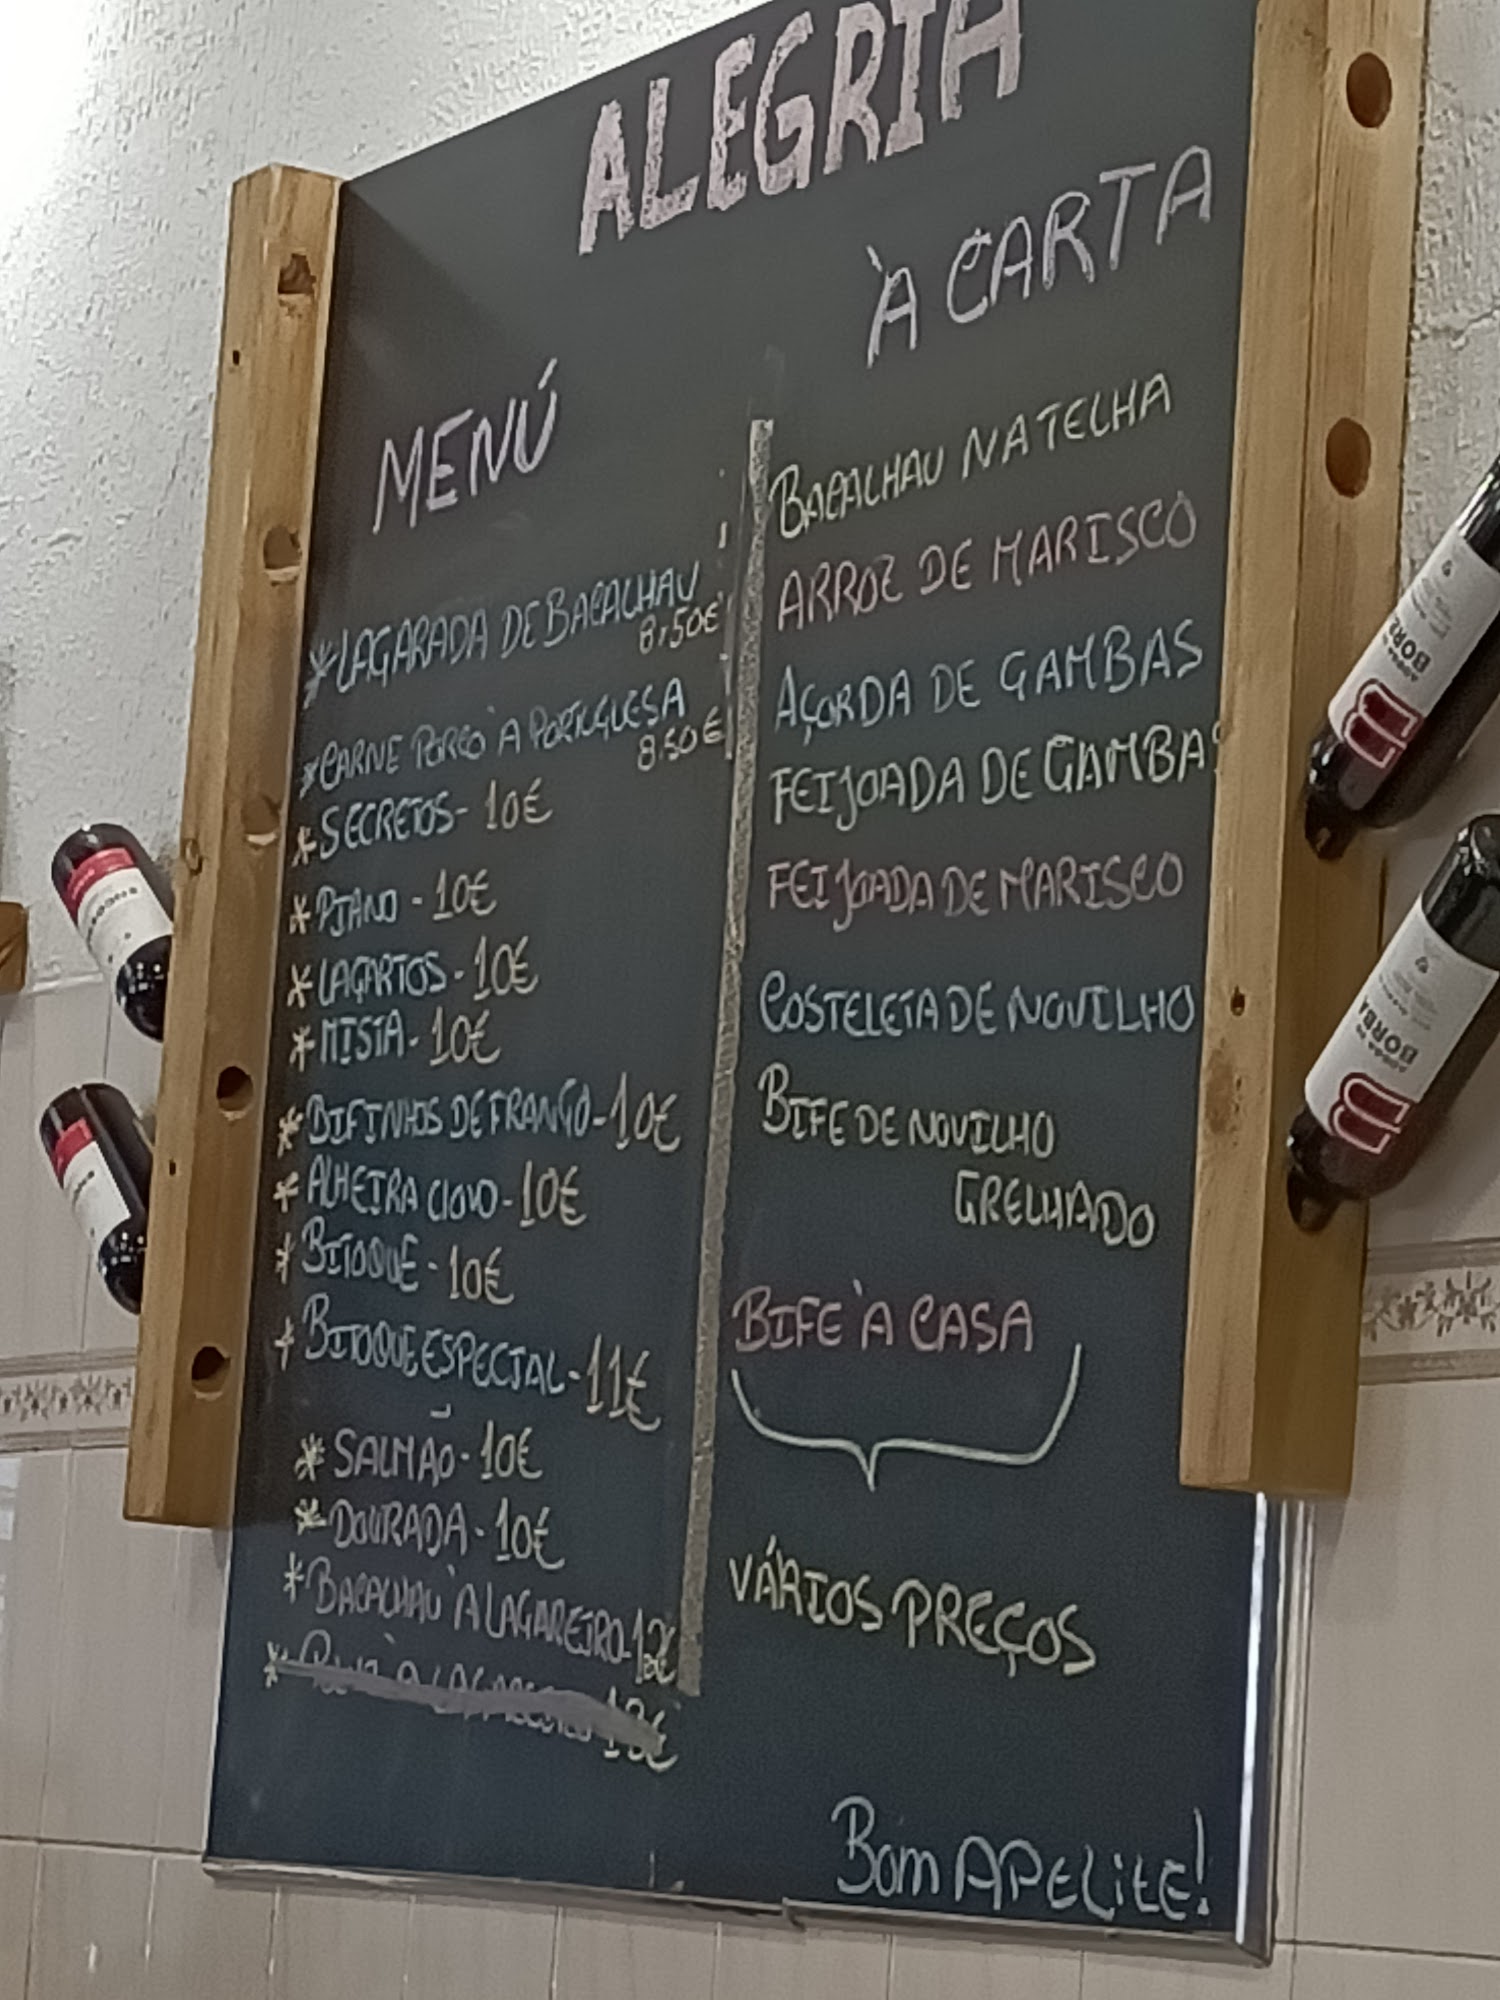 ALEGRIA
MENÚ
* LAGARADA DE BACALHAU
8,50€
* CARNE PORCO À PORTUGUESA
8.50€
* SECRETOS - 10€
* PIANO - 10€
* LAGARTOS - 10€
* MISTA - 10€
* BIFINHOS DE FRANGO - 10€
* ALHEIRA C/OVO - 10€
* BITOQUE - 10€
* BITOQUE ESPECIAL - 11€
* SALMÃO - 10€
* DOURADA - 10€
* BACALHAU À LAGAREIRO - 12€
À CARTA
BACALHAU NA TELHA
ARROZ DE MARISCO
AÇORDA DE GAMBAS
FEIJOADA DE GAMBAS
FEIJOADA DE MARISCO
COSTELETA DE NOVILHO
BIFE DE NOVILHO
GRELHADO
BIFE À CASA
VÁRIOS PREÇOS
Bom APELITE!
ADEGA DE
BORBA
ADEGA DE
BORBA